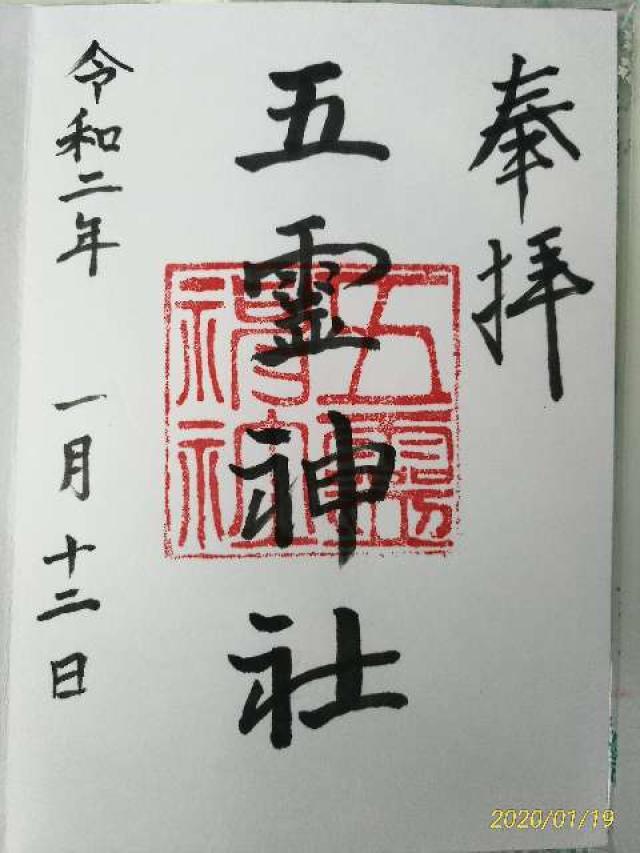 奉拝
五霊神社
令和二年 一月十二日
2020/01/19